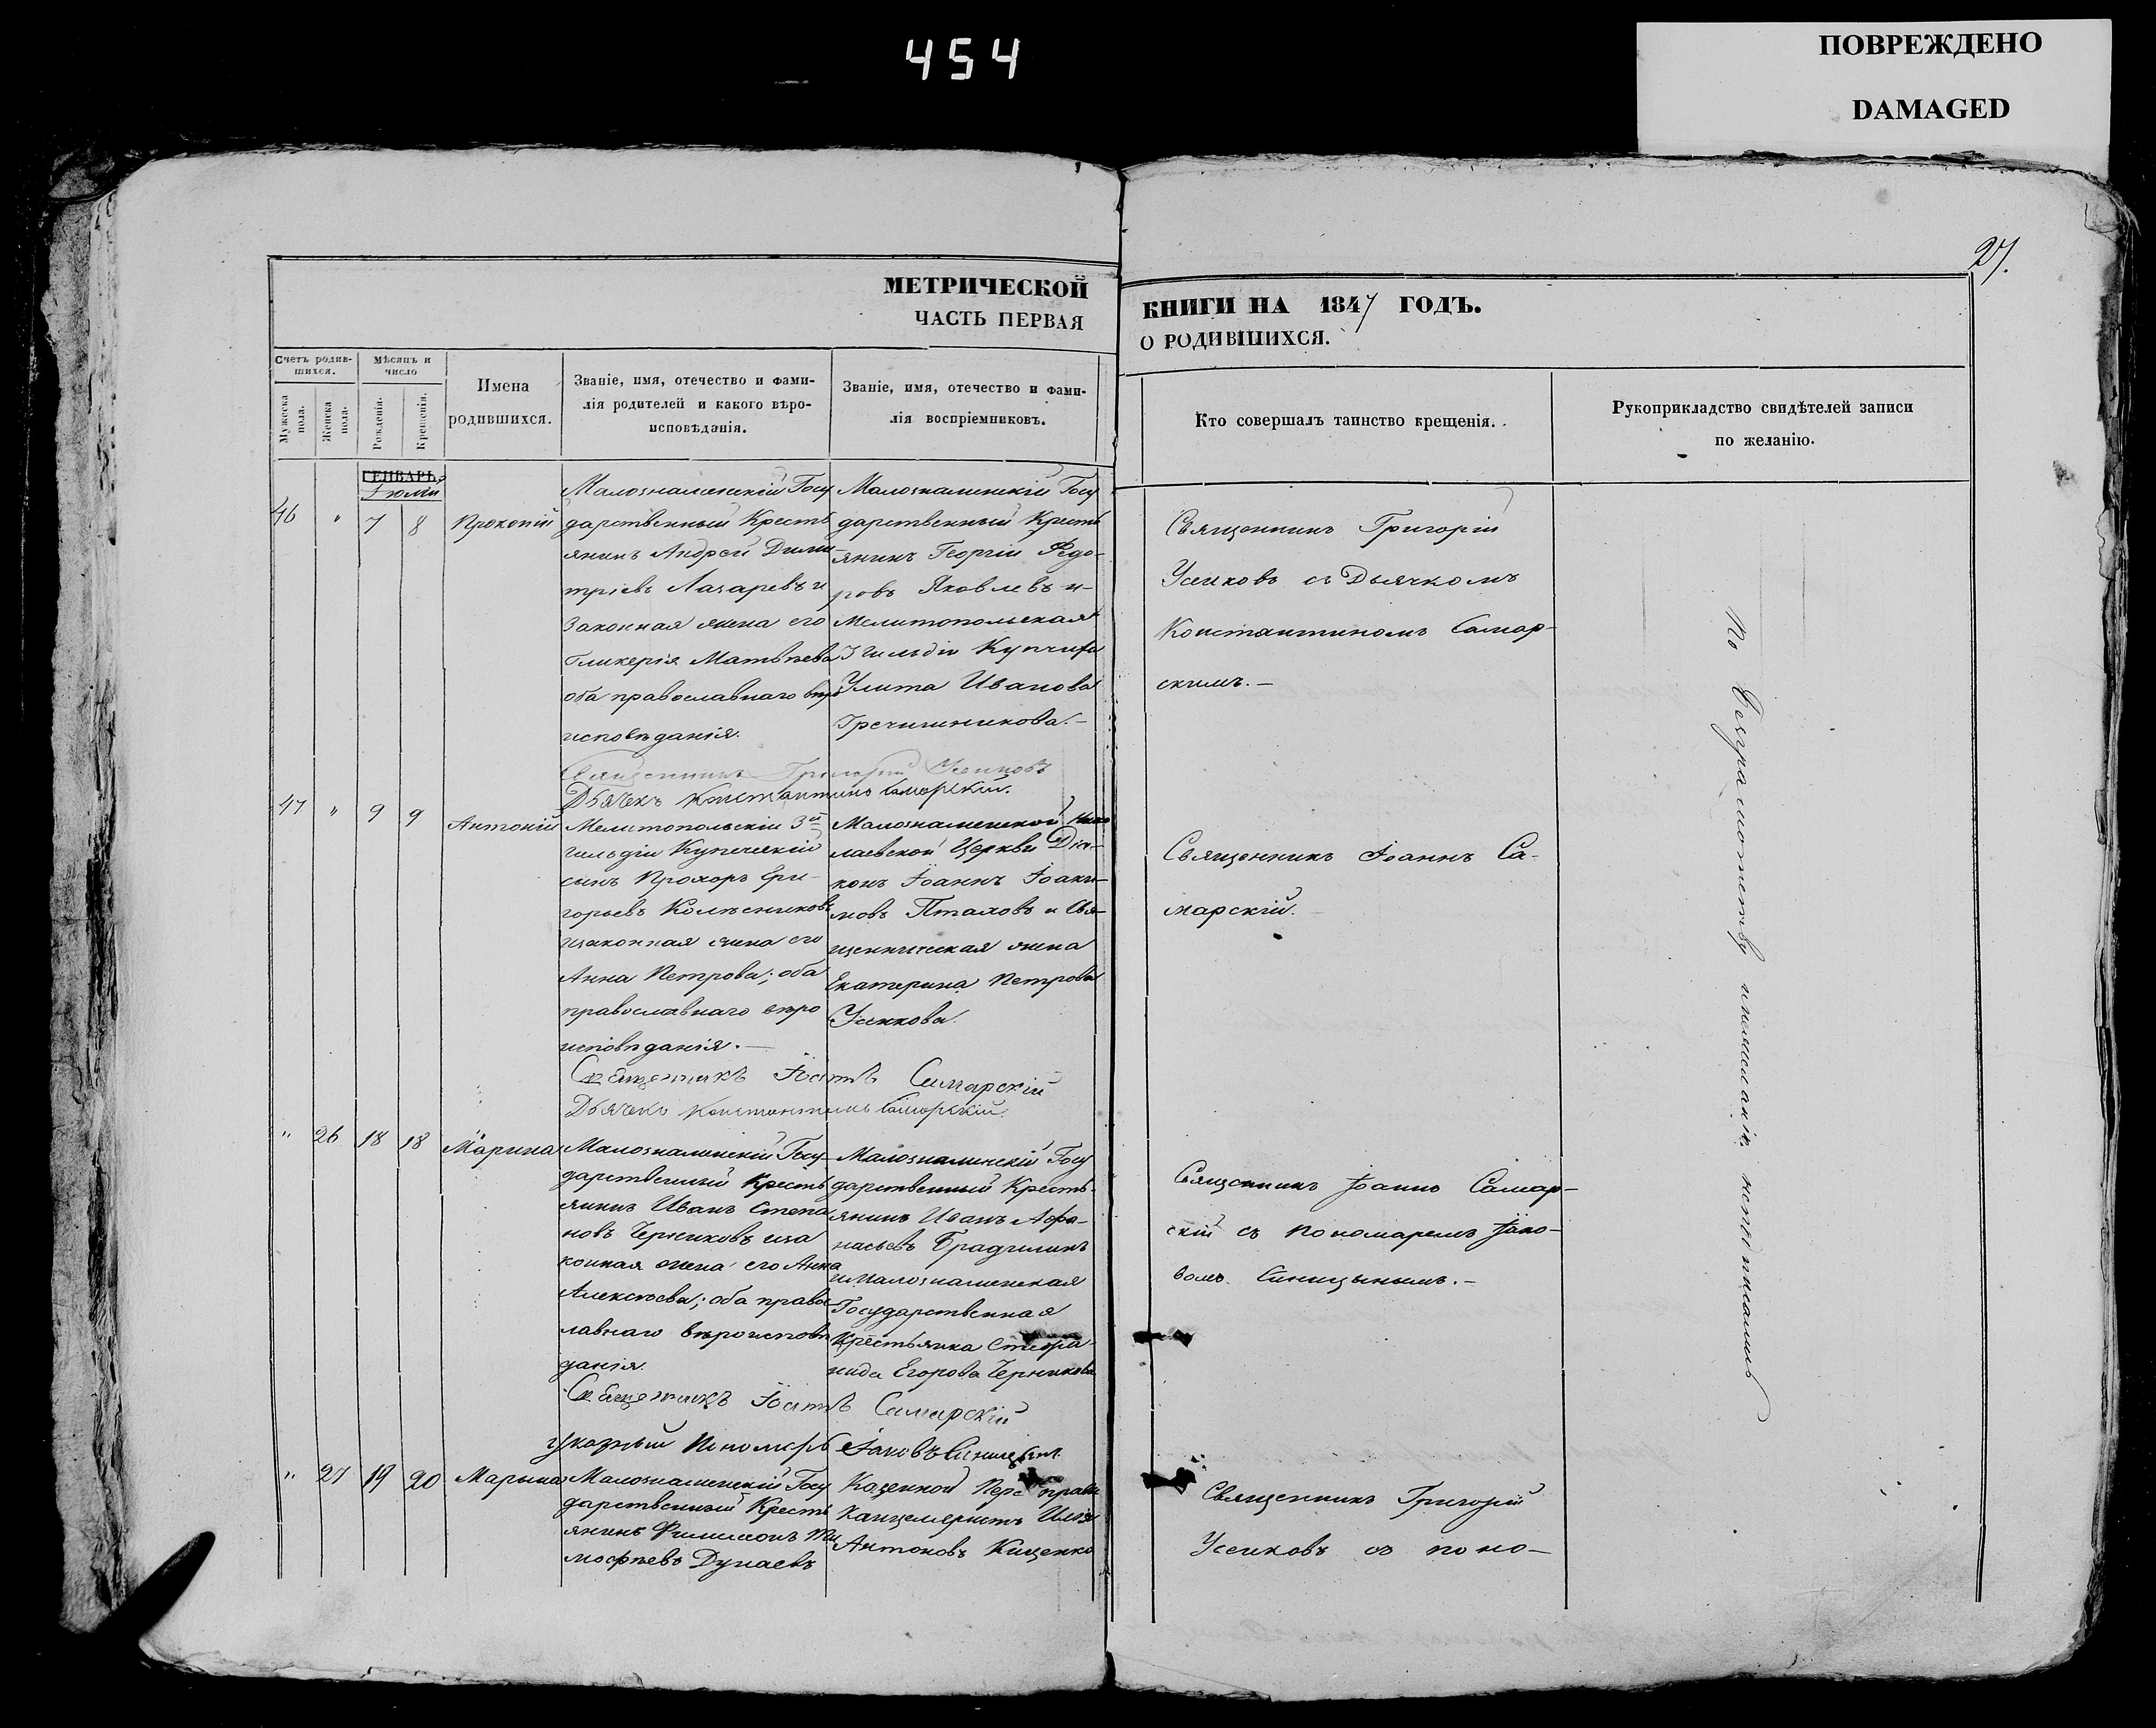 454
ПОВРЕЖДЕНО
DAMAGED
27.
МЕТРИЧЕСКОЙ
ЧАСТЬ ПЕРВАЯ
КНИГИ НА 1847 ГОДЪ.
О РОДИВШИХСЯ.
Счетъ родив-
шихся.
Мужеска
пола.
Женска
пола.
Мѣсяцъ и
число
Рожденія.
Крещенія.
Имена
родившихся.
Званіе, имя, отечество и фами-
лія родителей и какого вѣро-
исповѣданія.
Званіе, имя, отечество и фами-
лія воспріемниковъ.
Кто совершалъ таинство крещенія.
Рукоприкладство свидѣтелей записи
по желанію.
ГЕНВАРЬ.
Іюлій
46 " 7 8 Прокопій
Малознаменскій Госу
дарственный Кресть
янинъ Андрей Дими
тріевъ Лазаревъ и
законная жена его
Гликерія Матвѣева
оба православнаго вѣро
исповѣданія.
Малознаменскій Госу
дарственный Кресть
янинъ Георгій Ѳедо-
ровъ Яковлевъ и-
Мелитопольская
3 гильдіи Купчиха
Улита Иванова
Гречишникова.-
Священникъ Григорій
Усиковъ съ Дьячкомъ
Константиномъ Самар-
скимъ.-
Священникъ Григорій Усиковъ
Дьячекъ Константинъ Самарскій.
47 " 9 9 Антоній
Мелитопольскій 3й
гильдіи Купеческій
сынъ Прохоръ Гри-
горьевъ Колѣсниковъ
изаконная жена его
Анна Петрова; оба
православнаго вѣро
исповѣданія.-
Малознаменской Нико
лаевской Церкви Діа-
конъ Іоаннъ Іоаки-
мовъ Птаховъ и Свя-
щенническая жена
Екатерина Петрова
Усикова.
Священникъ Іоаннъ Са-
марскій.
Священникъ Іоаннъ Самарскій
Дьячекъ Константинъ Самарскій.
" 26 18 18 Марина
Малознаменскій Госу-
дарственный Кресть
янинъ Иванъ Степа
новъ Черниковъ иза
конная жена его Анна
Алексѣева; оба правос
лавнаго вѣроисповѣ
данія.
Малознаменскій Госу
дарственный Кресть-
янинъ Иванъ Афа-
насьевъ Брадулинъ
и Малознаменская
Государственная
Крестьянка Стефа-
нида Егорова Черникова
Священникъ Іоаннъ Самар-
скій съ пономаремъ Іако-
вомъ Синицынымъ.-
Священникъ Іоаннъ Самарскій
указный Пономарь Іаковъ Синицынъ
" 27 19 20 Марина
Малознаменскій Госу
дарственный Кресть
янинъ Филимонъ Ти
мофѣевъ Дунаевъ
Казенной
Канцеляристъ Илія
Антоновъ Кищенко
Священникъ Григорій
Усиковъ съ поно-
По безграмотству